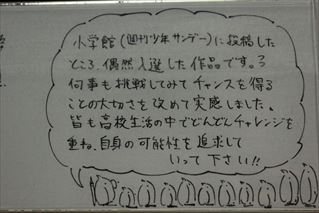 小学館(週刊少年サンデー)に投稿した
ところ、偶然入選した作品です。
何事も挑戦してみてチャンスを得る
ことの大切さを改めて実感しました。
皆も高校生活の中でどんどんチャレンジを
重ね、自身の可能性を追求して
いって下さい!!